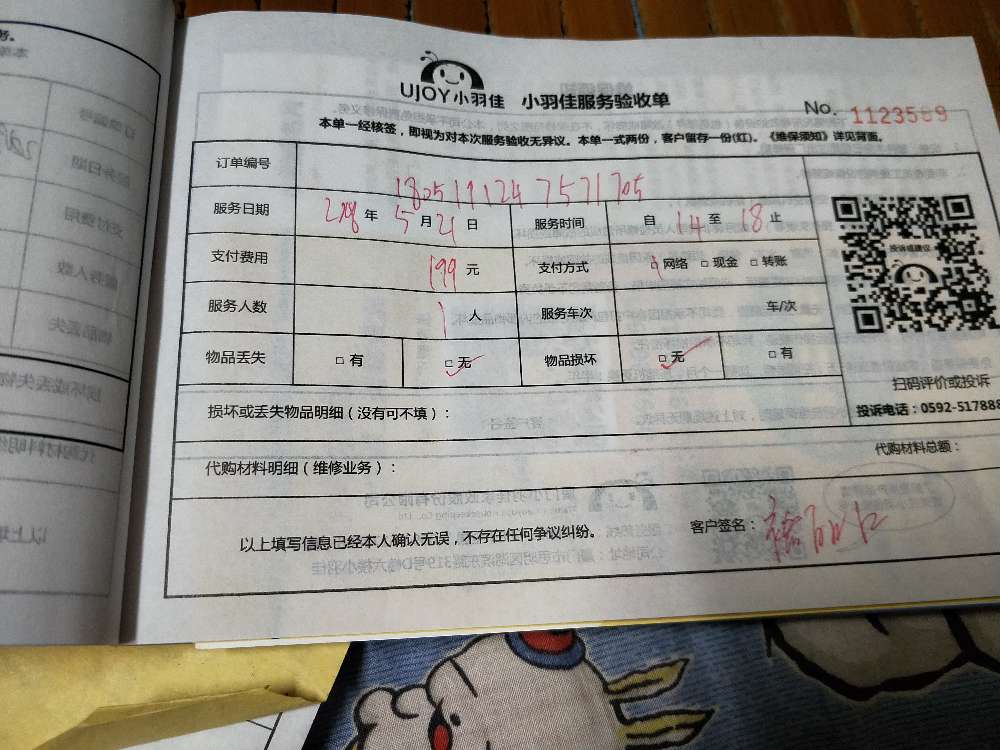 UJOY小羽佳 小羽佳服务验收单
No. 1123589
本单一经核签，即视为对本次服务验收无异议。本单一式两份，客户留存一份(红)。《维保须知》详见背面。
订单编号 180519124 7571705
服务日期 2018 年 5 月 21 日 服务时间 自 14 至 18 止
支付费用 199 元 支付方式 □网络 □现金 □转账
服务人数 1 人 服务车次 车/次
物品丢失 □ 有 □ 无 物品损坏 □ 无 □ 有
投诉或建议
扫码评价或投诉
投诉电话：0592-517888
损坏或丢失物品明细（没有可不填）：
代购材料明细（维修业务）： 代购材料总额：
以上填写信息已经本人确认无误，不存在任何争议纠纷。 客户签名：